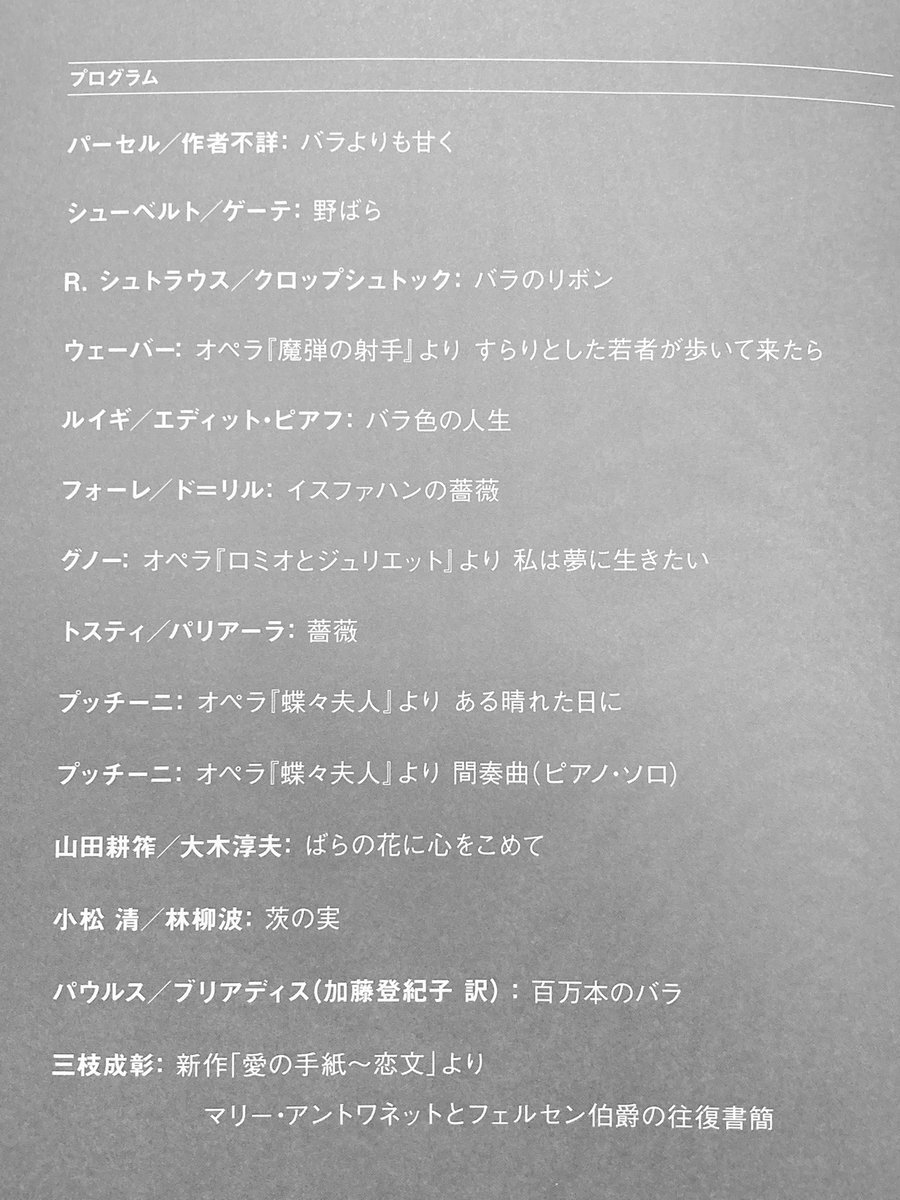 プログラム
パーセル／作者不詳： バラよりも甘く
シューベルト／ゲーテ： 野ばら
R. シュトラウス／クロップシュトック： バラのリボン
ウェーバー： オペラ『魔弾の射手』より すらりとした若者が歩いて来たら
ルイギ／エディット・ピアフ： バラ色の人生
フォーレ／ド＝リル： イスファハンの薔薇
グノー： オペラ『ロミオとジュリエット』より 私は夢に生きたい
トスティ／パリアーラ： 薔薇
プッチーニ： オペラ『蝶々夫人』より ある晴れた日に
プッチーニ： オペラ『蝶々夫人』より 間奏曲（ピアノ・ソロ）
山田耕筰／大木淳夫： ばらの花に心をこめて
小松 清／林柳波： 茨の実
パウルス／ブリアディス（加藤登紀子 訳）： 百万本のバラ
三枝成彰： 新作「愛の手紙〜恋文」より
マリー・アントワネットとフェルセン伯爵の往復書簡